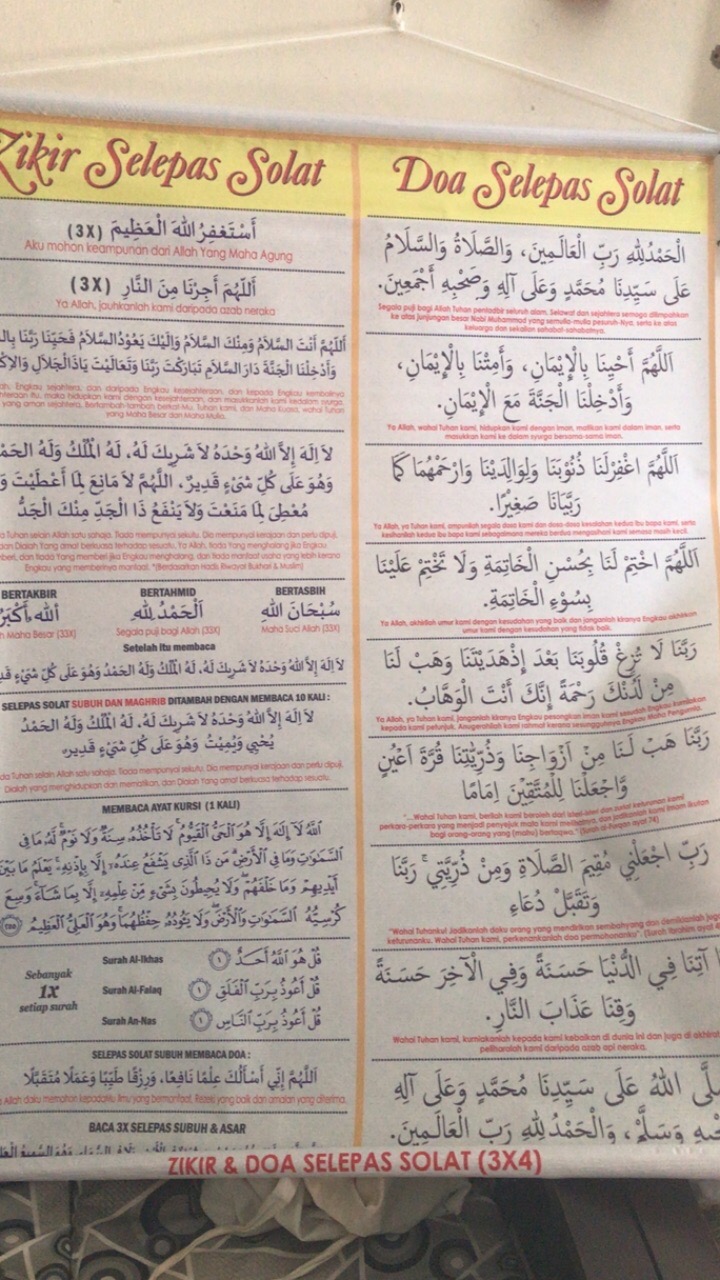 Zikir Selepas Solat
أَسْتَغْفِرُ اللهَ الْعَظِيمَ (3X)
Aku mohon keampunan dari Allah Yang Maha Agung
اَللّٰهُمَّ أَجِرْنَا مِنَ النَّارِ (3X)
Ya Allah, jauhkanlah kami daripada azab neraka
اَللّٰهُمَّ أَنْتَ السَّلَامُ وَمِنْكَ السَّلَامُ وَإِلَيْكَ يَعُودُ السَّلَامُ فَحَيِّنَا رَبَّنَا
وَأَدْخِلْنَا الْجَنَّةَ دَارَ السَّلَامِ تَبَارَكْتَ رَبَّنَا وَتَعَالَيْتَ يَاذَا الْجَلَالِ
Engkau sejahtera, dan daripada Engkau kesejahteraan, dan kepada Engkau kembalinya
itu, maka hidupkan kami dengan kesejahteraan, dan masukkanlah kami kedalam syurga
yang aman sejahtera. Bertambah-tambah berkat-Mu, Tuhan kami, dan Maha Kuasa, wahai Tuhan
yang Maha Besar dan Maha Mulia.
لاَ إِلَهَ إِلاَّ اللهُ وَحْدَهُ لاَ شَرِيكَ لَهُ، لَهُ الْمُلْكُ وَلَهُ
وَهُوَ عَلَى كُلِّ شَيْءٍ قَدِيرٌ، اللَّهُمَّ لاَ مَانِعَ لِمَا أَعْطَيْتَ وَ
مُعْطِيَ لِمَا مَنَعْتَ وَلَا يَنْفَعُ ذَا الْجَدِّ مِنْكَ الْجَدُّ
Tuhan selain Allah satu sahaja. Tiada mempunyai sekutu. Dia mempunyai kerajaan dan perlu dipuji,
dan Dialah Yang amat berkuasa terhadap sesuatu. Ya Allah, Tiada Yang menghalang jika Engkau
beri, dan tiada Yang memberi jika Engkau menghalang, dan tiada manfaat usaha yang lebih kerana
Engkau yang memberinya manfaat. *(Berdasarkan Hadis Riwayat Bukhari & Muslim)
BERTAKBIR BERTAHMID BERTASBIH
اَللهُ أَكْبَرُ اَلْحَمْدُ لِلهِ سُبْحَانَ اللهِ
Maha Besar (33X) Segala puji bagi Allah (33X) Maha Suci Allah (33X)
Setelah itu membaca
لاَ إِلَهَ إِلاَّ اللهُ وَحْدَهُ لاَ شَرِيكَ لَهُ، لَهُ الْمُلْكُ وَلَهُ الْحَمْدُ وَهُوَ عَلَى كُلِّ شَيْءٍ
SELEPAS SOLAT SUBUH DAN MAGHRIB DITAMBAH DENGAN MEMBACA 10 KALI :
لاَ إِلَهَ إِلاَّ اللهُ وَحْدَهُ لاَ شَرِيكَ لَهُ، لَهُ الْمُلْكُ وَلَهُ الْحَمْدُ
يُحْيِي وَيُمِيتُ وَهُوَ عَلَى كُلِّ شَيْءٍ قَدِيرٌ
Tuhan selain Allah satu sahaja. Tiada mempunyai sekutu. Dia mempunyai kerajaan dan perlu dipuji.
Dialah yang menghidupkan dan mematikan, dan Dialah Yang amat berkuasa terhadap sesuatu.
MEMBACA AYAT KURSI (1 KALI)
اللَّهُ لَا إِلَهَ إِلَّا هُوَ الْحَيُّ الْقَيُّومُ لَا تَأْخُذُهُ سِنَةٌ وَلَا نَوْمٌ لَهُ مَا فِي
السَّمَوَاتِ وَمَا فِي الْأَرْضِ مَنْ ذَا الَّذِي يَشْفَعُ عِنْدَهُ إِلَّا بِإِذْنِهِ يَعْلَمُ مَا بَيْنَ
أَيْدِيهِمْ وَمَا خَلْفَهُمْ وَلَا يُحِيطُونَ بِشَيْءٍ مِنْ عِلْمِهِ إِلَّا بِمَا شَاءَ وَسِعَ
كُرْسِيُّهُ السَّمَوَاتِ وَالْأَرْضَ وَلَا يَئُودُهُ حِفْظُهُمَا وَهُوَ الْعَلِيُّ الْعَظِيمُ ٢٥٥
Sebanyak
1X
setiap surah
Surah Al-Ikhas قُلْ هُوَ اللَّهُ أَحَدٌ ١
Surah Al-Falaq قُلْ أَعُوذُ بِرَبِّ الْفَلَقِ ١
Surah An-Nas قُلْ أَعُوذُ بِرَبِّ النَّاسِ ١
SELEPAS SOLAT SUBUH MEMBACA DOA :
اَللّٰهُمَّ إِنِّي أَسْأَلُكَ عِلْمًا نَافِعًا، وَرِزْقًا طَيِّبًا وَعَمَلًا مُتَقَبَّلًا
Allah daku memohon kepadaMu ilmu yang bermanfaat, Rezeki yang baik dan amalan yang diterima.
BACA 3X SELEPAS SUBUH & ASAR
Doa Selepas Solat
الْحَمْدُ لِلهِ رَبِّ الْعَالَمِينَ، وَالصَّلَاةُ وَالسَّلَامُ
عَلَى سَيِّدِنَا مُحَمَّدٍ وَعَلَى آلِهِ وَصَحْبِهِ أَجْمَعِينَ.
Segala puji bagi Allah Tuhan pentadbir seluruh alam. Selawat dan sejahtera semoga dilimpahkan
ke atas junjungan besar Nabi Muhammad yang semulia-mulia pesuruh-Nya, serta ke atas
keluarga dan sekalian sahabat-sahabatnya.
اَللَّهُمَّ أَحْيِنَا بِالْإِيْمَانِ، وَأَمِتْنَا بِالْإِيْمَانِ،
وَأَدْخِلْنَا الْجَنَّةَ مَعَ الْإِيْمَانِ.
Ya Allah, wahai Tuhan kami, hidupkan kami dengan iman, matikan kami dalam iman, serta
masukkan kami ke dalam syurga bersama-sama iman.
اَللَّهُمَّ اغْفِرْلَنَا ذُنُوْبَنَا وَلِوَالِدَيْنَا وَارْحَمْهُمَا كَمَا
رَبَّيَانَا صَغِيْرًا.
Ya Allah, ya Tuhan kami, ampunilah segala dosa kami dan dosa-dosa kesalahan kedua ibu bapa kami, serta
kasihanilah kedua ibu bapa kami sebagaimana mereka berdua mengasihani kami semasa masih kecil.
اَللَّهُمَّ اخْتِمْ لَنَا بِحُسْنِ الْخَاتِمَةِ وَلَا تَخْتِمْ عَلَيْنَا
بِسُوْءِ الْخَاتِمَةِ.
Ya Allah, akhirilah umur kami dengan kesudahan yang baik dan janganlah kiranya Engkau akhirkan
umur kami dengan kesudahan yang tidak baik.
رَبَّنَا لَا تُزِغْ قُلُوْبَنَا بَعْدَ إِذْهَدَيْتَنَا وَهَبْ لَنَا
مِنْ لَدُنْكَ رَحْمَةً إِنَّكَ أَنْتَ الْوَهَّابُ.
Ya Allah, ya Tuhan kami, janganlah kiranya Engkau pesongkan iman kami sesudah Engkau kurniakan
kepada kami petunjuk. Anugerahilah kami rahmat kerana sesungguhnya Engkau Maha Pengurnia.
رَبَّنَا هَبْ لَنَا مِنْ أَزْوَاجِنَا وَذُرِّيَّٰتِنَا قُرَّةَ أَعْيُنٍ
وَّاجْعَلْنَا لِلْمُتَّقِيْنَ إِمَامًا
"...Wahai Tuhan kami, berilah kami beroleh dari isteri-isteri dan zuriat keturunan kami
perkara-perkara yang menjadi penyejuk mata kami melihatnya, dan jadikanlah kami imam ikutan
bagi orang-orang yang (mahu) bertaqwa." (Surah al-Furqan ayat 74)
رَبِّ اجْعَلْنِي مُقِيمَ الصَّلَاةِ وَمِنْ ذُرِّيَّتِي رَبَّنَا
وَتَقَبَّلْ دُعَاءِ
"Wahai Tuhanku! Jadikanlah daku orang yang mendirikan sembahyang dan demikianlah juga
keturunanku. Wahai Tuhan kami, perkenankanlah doa permohonanku". (Surah Ibrahim ayat
آتِنَا فِي الدُّنْيَا حَسَنَةً وَفِي الْآخِرَةِ حَسَنَةً
وَقِنَا عَذَابَ النَّارِ.
Wahai Tuhan kami, kurniakanlah kepada kami kebaikan di dunia ini dan juga di akhirat,
peliharalah kami daripada azab api neraka.
اللهُ عَلَى سَيِّدِنَا مُحَمَّدٍ وَعَلَى آلِهِ
وَسَلَّمَ، وَالْحَمْدُ لِلهِ رَبِّ الْعَالَمِينَ.
ZIKIR & DOA SELEPAS SOLAT (3X4)